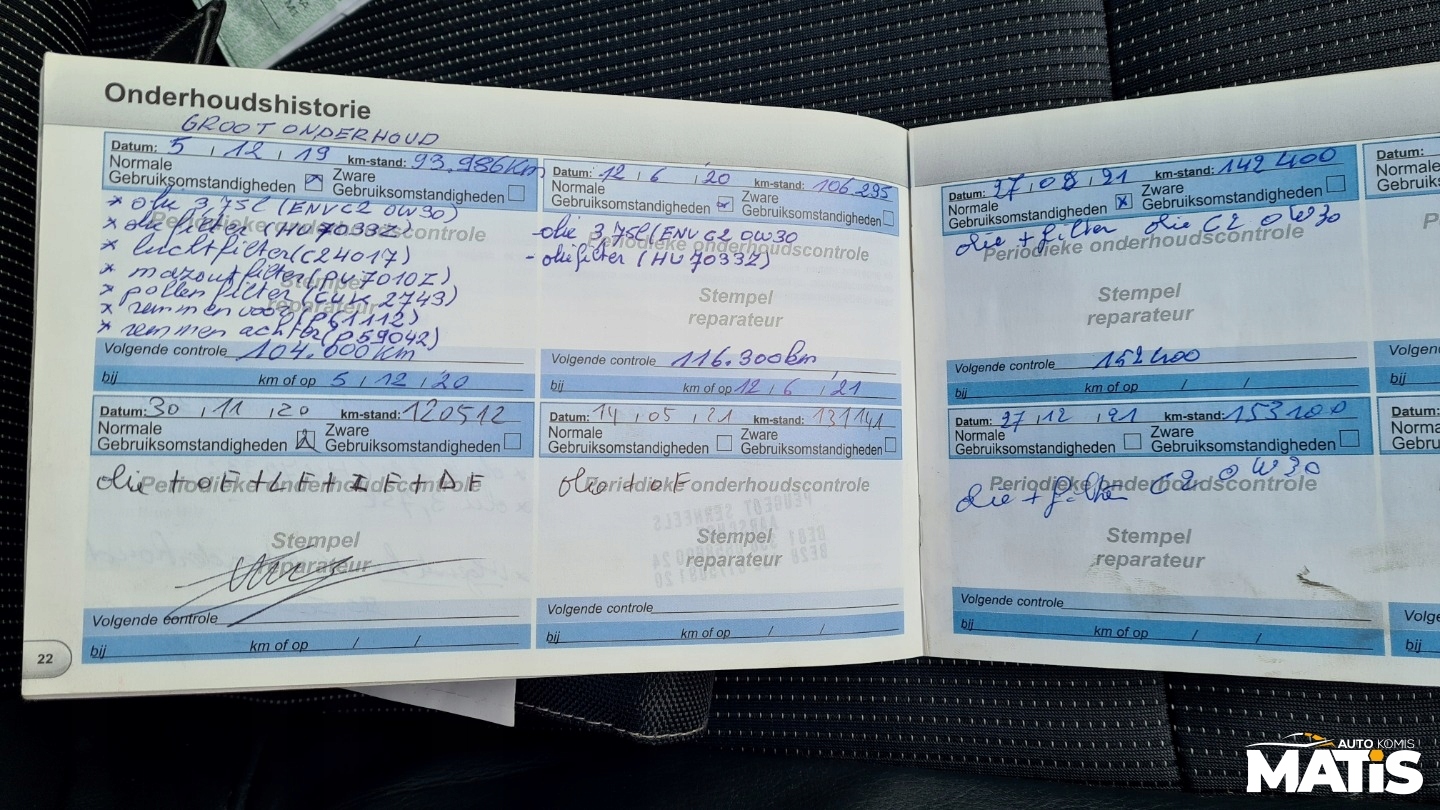 Onderhoudshistorie
GROOT ONDERHOUD
Datum: 5 / 12 / 19 km-stand: 93.986Km
Normale Gebruiksomstandigheden Zware Gebruiksomstandigheden
Periodieke onderhoudscontrole
* olie 3,75l (ENV C2 0W30)
* oliefilter (HU7033Z)
* luchtfilter (C24017)
* mazoutfilter (PU7010Z)
* pollenfilter (CUK 2743)
* remmen voor (P61112)
* remmen achter (P59042)
Stempel
reparateur
Volgende controle 104.000Km
bij km of op 5 / 12 / 20
Datum: 12 / 6 / '20 km-stand: 106.295
Normale Gebruiksomstandigheden Zware Gebruiksomstandigheden
- olie 3,75l (ENV C2 0W30
Periodieke onderhoudscontrole
- oliefilter (HU7033Z)
Stempel
reparateur
Volgende controle 116.300km
bij km of op 12 / 6 / 21
Datum: 30 / 11 / 20 km-stand: 120512
Normale Gebruiksomstandigheden Zware Gebruiksomstandigheden
olie + OF + LF + IF + DF
Periodieke onderhoudscontrole
Stempel
reparateur
Volgende controle
bij km of op / /
Datum: 14 / 05 / 21 km-stand: 131141
Normale Gebruiksomstandigheden Zware Gebruiksomstandigheden
olie + OF
Periodieke onderhoudscontrole
Stempel
reparateur
Volgende controle
bij km of op / /
22
Datum: 27 / 08 / 21 km-stand: 142400
Normale Gebruiksomstandigheden Zware Gebruiksomstandigheden
olie + filter olie C2 0W30
Periodieke onderhoudscontrole
Stempel
reparateur
Volgende controle 152400
bij km of op / /
Datum: 27 / 12 / 21 km-stand: 153100
Normale Gebruiksomstandigheden Zware Gebruiksomstandigheden
olie + filter C2 0W30
Periodieke onderhoudscontrole
Stempel
reparateur
Volgende controle
bij km of op / /
Datum:
Norma
Gebru
Volgen
bij
Datum:
Norma
Gebru
Volge
bij
AUTO KOMIS
MATiS